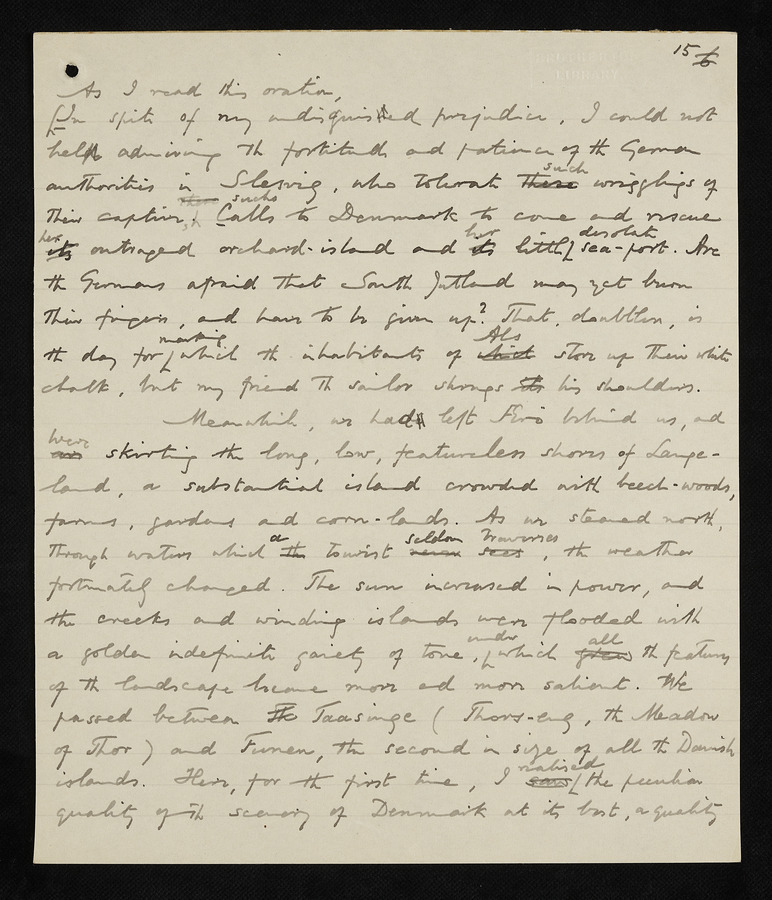 15 6
As I read this oration,
[In spite of my undisguised prejudice, I could not
help admiring the fortitude and patience of the German
such
authorities in Slesvig, who tolerate these wrigglings of
such
their captive. Calls to Denmark to come and rescue
her her desolate
its outraged orchard-island and its little sea-port. Are
the Germans afraid that South Jutland may yet burn
their fingers, and have to be given up? That, doubtless, is
making Als
the day for which the inhabitants of which store up their white
chalk, but my friend the sailor shrugs his shoulders.
Meanwhile, we had left Ærö behind us, and
were
are skirting the long, low, featureless shores of Lange-
land, a substantial island crowded with beech-woods,
farms, gardens and corn-lands. As we steamed north,
a seldom traverses
through waters which the tourist never sees, the weather
fortunately changed. The sun increased in power, and
the creeks and winding islands were flooded with
under all
a golden indefinite gaiety of tone, which grew the features
of the landscape became more and more salient. We
passed between the Taasinge (Thors-eng, the Meadow
of Thor) and Funen, the second in size of all the Danish
realised
islands. Here, for the first time, I saw the peculiar
quality of the scenery of Denmark at its best, a quality